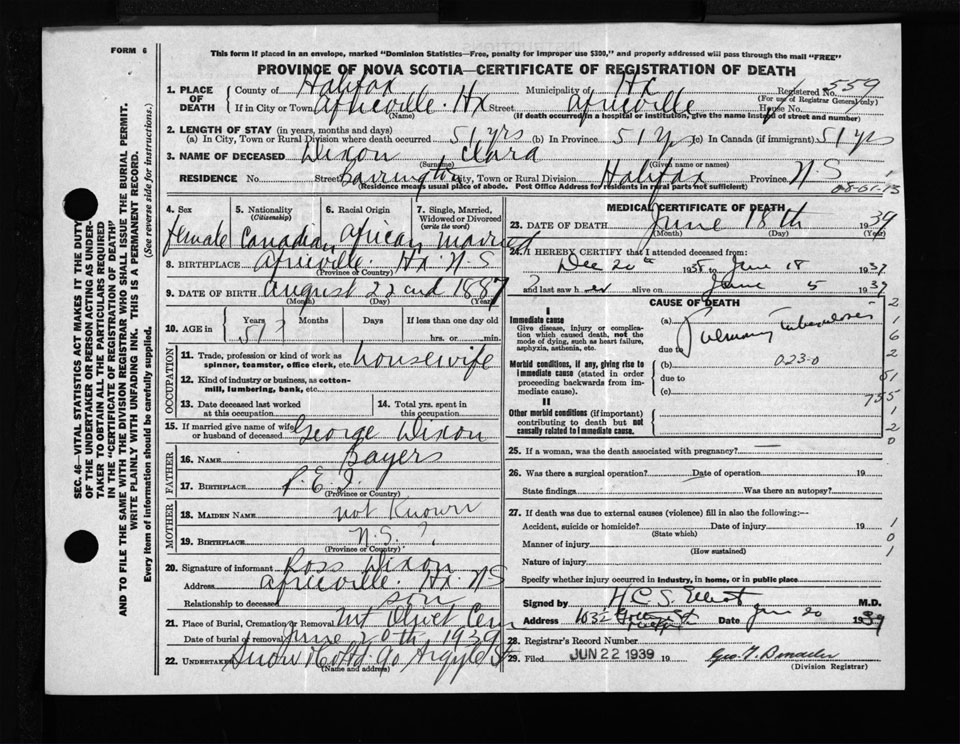 FORM 6
This form if placed in an envelope, marked "Dominion Statistics—Free, penalty for improper use $300," and properly addressed will pass through the mail "FREE"
PROVINCE OF NOVA SCOTIA—CERTIFICATE OF REGISTRATION OF DEATH
1. PLACE OF DEATH
County of Halifax Municipality of Hx Registered No. 559
(For use of Registrar General only)
If in City or Town Africville. Hx Street Africville House No.
(Name) (If death occurred in a hospital or institution, give the name instead of street and number)
2. LENGTH OF STAY (in years, months and days)
(a) In City, Town or Rural Division where death occurred 51 yrs (b) in Province 51 Yrs (c) in Canada (if immigrant) 51 yrs
3. NAME OF DECEASED Dixon Clara
(Surname) (Given name or names)
RESIDENCE No. Street Barrington City, Town or Rural Division Halifax Province N.S
(Residence means usual place of abode. Post Office Address for residents in rural parts not sufficient)
4. Sex 5. Nationality (Citizenship) 6. Racial Origin 7. Single, Married, Widowed or Divorced (write the word)
female Canadian African Married
8. BIRTHPLACE Africville. Hx. N.S
(Province or Country)
9. DATE OF BIRTH August 22nd 1887
(Month) (Day) (Year)
10. AGE in Years Months Days If less than one day old
51 ? hrs. or min.
OCCUPATION
11. Trade, profession or kind of work as spinner, teamster, office clerk, etc. housewife
12. Kind of industry or business, as cotton-mill, lumbering, bank, etc.
13. Date deceased last worked at this occupation
14. Total yrs. spent in this occupation
15. If married give name of wife or husband of deceased George Dixon
FATHER
16. NAME Bayers
17. BIRTHPLACE P.E.I.
(Province or Country)
MOTHER
18. MAIDEN NAME not Known
19. BIRTHPLACE N.S. ?
(Province or Country)
20. Signature of informant Ross Dixon
Address Africville. Hx. N.S
Relationship to deceased son
21. Place of Burial, Cremation or Removal Mt Olivet Cem
Date of burial or removal June 20th 1939
22. Undertaker Snow & Co Ltd. 90 Argyle St
(Name and address)
MEDICAL CERTIFICATE OF DEATH
23. DATE OF DEATH June 18th 1939
(Month) (Day) (Year)
24. I HEREBY CERTIFY that I attended deceased from:
Dec 20th 1938 to June 18 1939
and last saw her alive on June 5 1939
CAUSE OF DEATH
I
Immediate cause
Give disease, injury or complication which caused death, not the mode of dying, such as heart failure, asphyxia, asthenia, etc.
(a) Pulmonary Tuberculosis
due to
Morbid conditions, if any, giving rise to immediate cause (stated in order proceeding backwards from immediate cause).
(b) 023-0
due to
(c)
II
Other morbid conditions (if important) contributing to death but not causally related to immediate cause.
25. If a woman, was the death associated with pregnancy? —
26. Was there a surgical operation? Date of operation 19
State findings Was there an autopsy?
27. If death was due to external causes (violence) fill in also the following:—
Accident, suicide or homicide? Date of injury 19
(State which)
Manner of injury
(How sustained)
Nature of injury
Specify whether injury occurred in industry, in home, or in public place
Signed by H.C.S. Elliot M.D.
Address Date June 20 1939
28. Registrar's Record Number
29. Filed JUN 22 1939 19
(Division Registrar)
SEC. 46—VITAL STATISTICS ACT MAKES IT THE DUTY
OF THE UNDERTAKER OR PERSON ACTING AS UNDER-
TAKER TO OBTAIN ALL THE PARTICULARS REQUIRED
IN THE "CERTIFICATE OF REGISTRATION OF DEATH"
AND TO FILE THE SAME WITH THE DIVISION REGISTRAR WHO SHALL ISSUE THE BURIAL PERMIT.
WRITE PLAINLY WITH UNFADING INK. THIS IS A PERMANENT RECORD.
Every item of information should be carefully supplied. (See reverse side for instructions.)